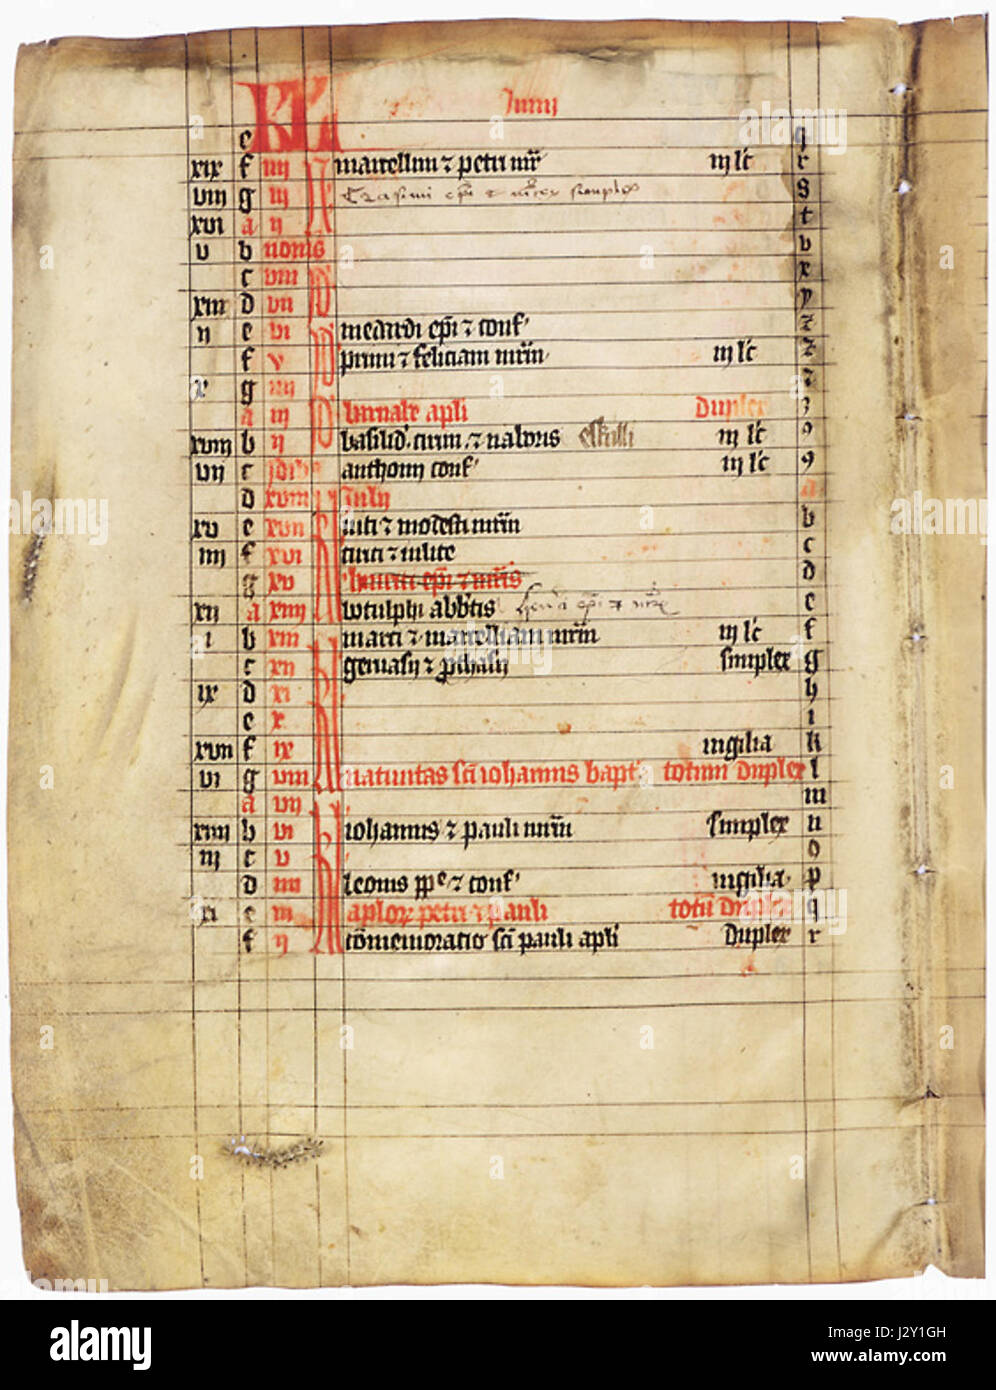 KL Junii
e q
xix f iiij N marcellini ⁊ petri mr̄ iij lc̄ r
viij g iij Erasmi ep̄i ⁊ mr̄ simplex s
xvi a ij t
v b nonis v
c viij x
xiii d vii y
ij e vi medardi ep̄i ⁊ conf' z
f v primi ⁊ feliciani mr̄m iij lc̄ z
x g iiij
a iij barnabe apl̄i Duplex 3
xviij b ij basilid' cirini ⁊ naboris iij lc̄ 9
vij c jdibus anthonij conf' iij lc̄ 9
d xviij Julij a
xv e xvij uiti ⁊ modesti mr̄m b
iiij f xvi cirici ⁊ iulite c
g xv ep̄i ⁊ mr̄is d
xij a xiiij botulphi abb̄tis ep̄i ⁊ mr̄ e
i b xiij marci ⁊ marcelliani mr̄m iij lc̄ f
c xij geruasij ⁊ ꝓthasij simplex g
ix d xi h
e x i
xvij f ix uigilia k
vi g viij natiuitas sc̄i iohannis bapt' totum duplex l
a vij m
xiiij b vi iohannis ⁊ pauli mr̄m simplex n
iij c v o
d iiij leonis pp̄e ⁊ conf' uigilia p
xi e iij aplorꝝ petri ⁊ pauli totū duplex q
f ij cōmemoratio sc̄i pauli apl̄i Duplex r
alamy
Image ID: J2Y1GH
www.alamy.com